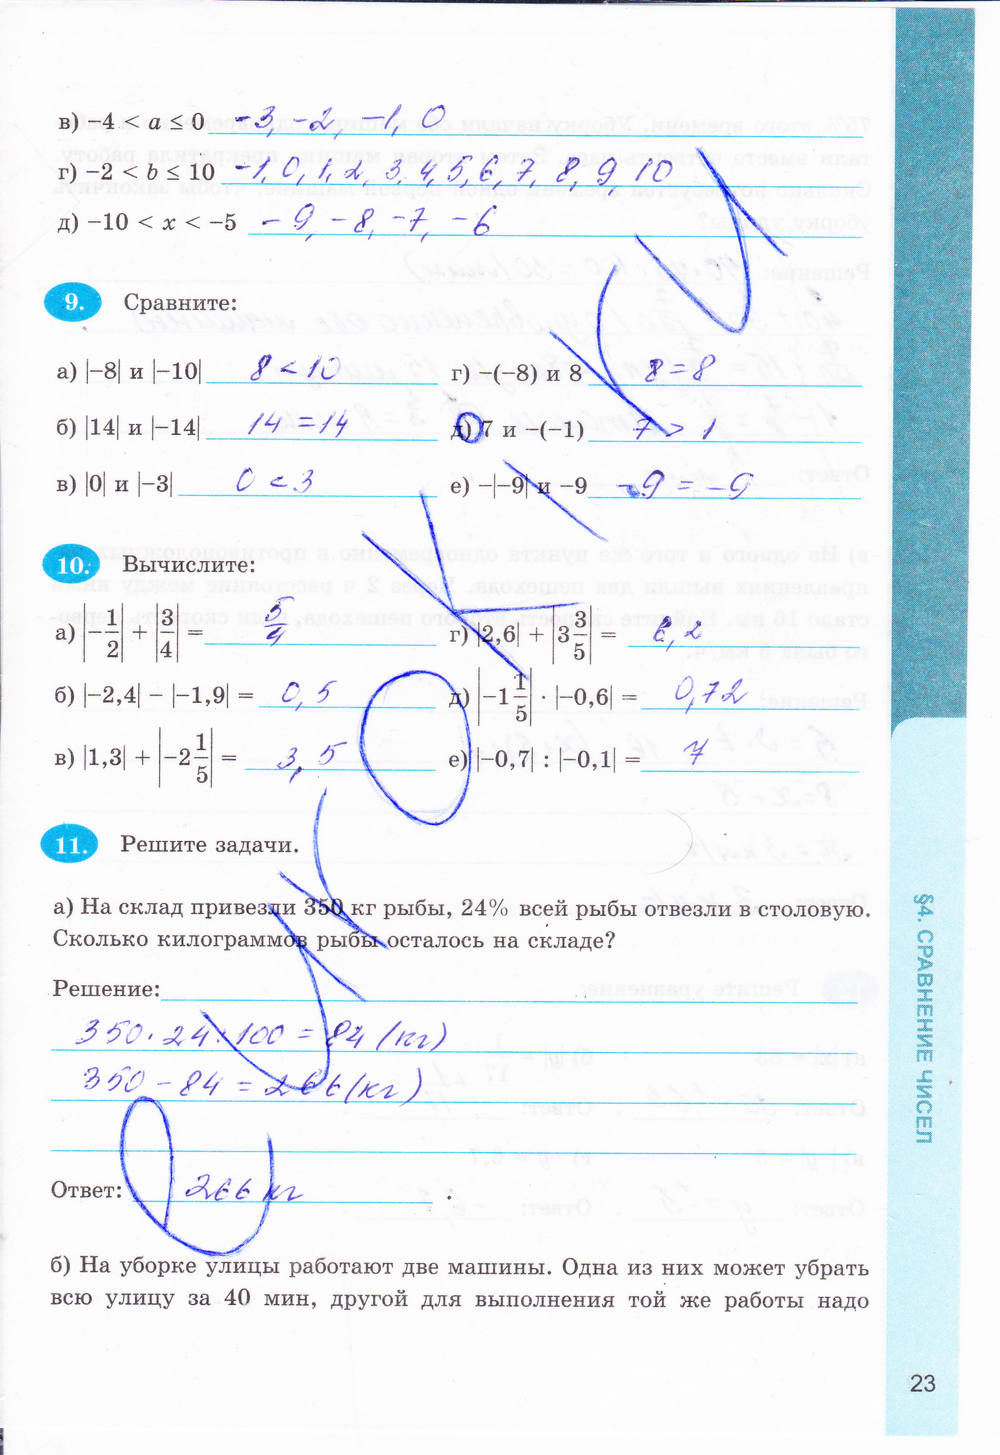 в) −4 < a ≤ 0 -3, -2, -1, 0
г) −2 < b ≤ 10 -1, 0, 1, 2, 3, 4, 5, 6, 7, 8, 9, 10
д) −10 < x < −5 -9, -8, -7, -6
9. Сравните:
а) |−8| и |−10| 8 < 10
г) −(−8) и 8 8 = 8
б) |14| и |−14| 14 = 14
д) 7 и −(−1) 7 > 1
в) |0| и |−3| 0 < 3
е) −|−9| и −9 -9 = -9
10. Вычислите:
а) |−1/2| + |3/4| = 5/4
г) |2,6| + |3 3/5| = 6,2
б) |−2,4| − |−1,9| = 0,5
д) |−1 1/5| · |−0,6| = 0,72
в) |1,3| + |−2 1/5| = 3,5
е) |−0,7| : |−0,1| = 7
11. Решите задачи.
а) На склад привезли 350 кг рыбы, 24% всей рыбы отвезли в столовую.
Сколько килограммов рыбы осталось на складе?
Решение:
350 · 24 : 100 = 84 (кг)
350 - 84 = 266 (кг)
Ответ: 266 кг .
б) На уборке улицы работают две машины. Одна из них может убрать
всю улицу за 40 мин, другой для выполнения той же работы надо
§4. СРАВНЕНИЕ ЧИСЕЛ
23